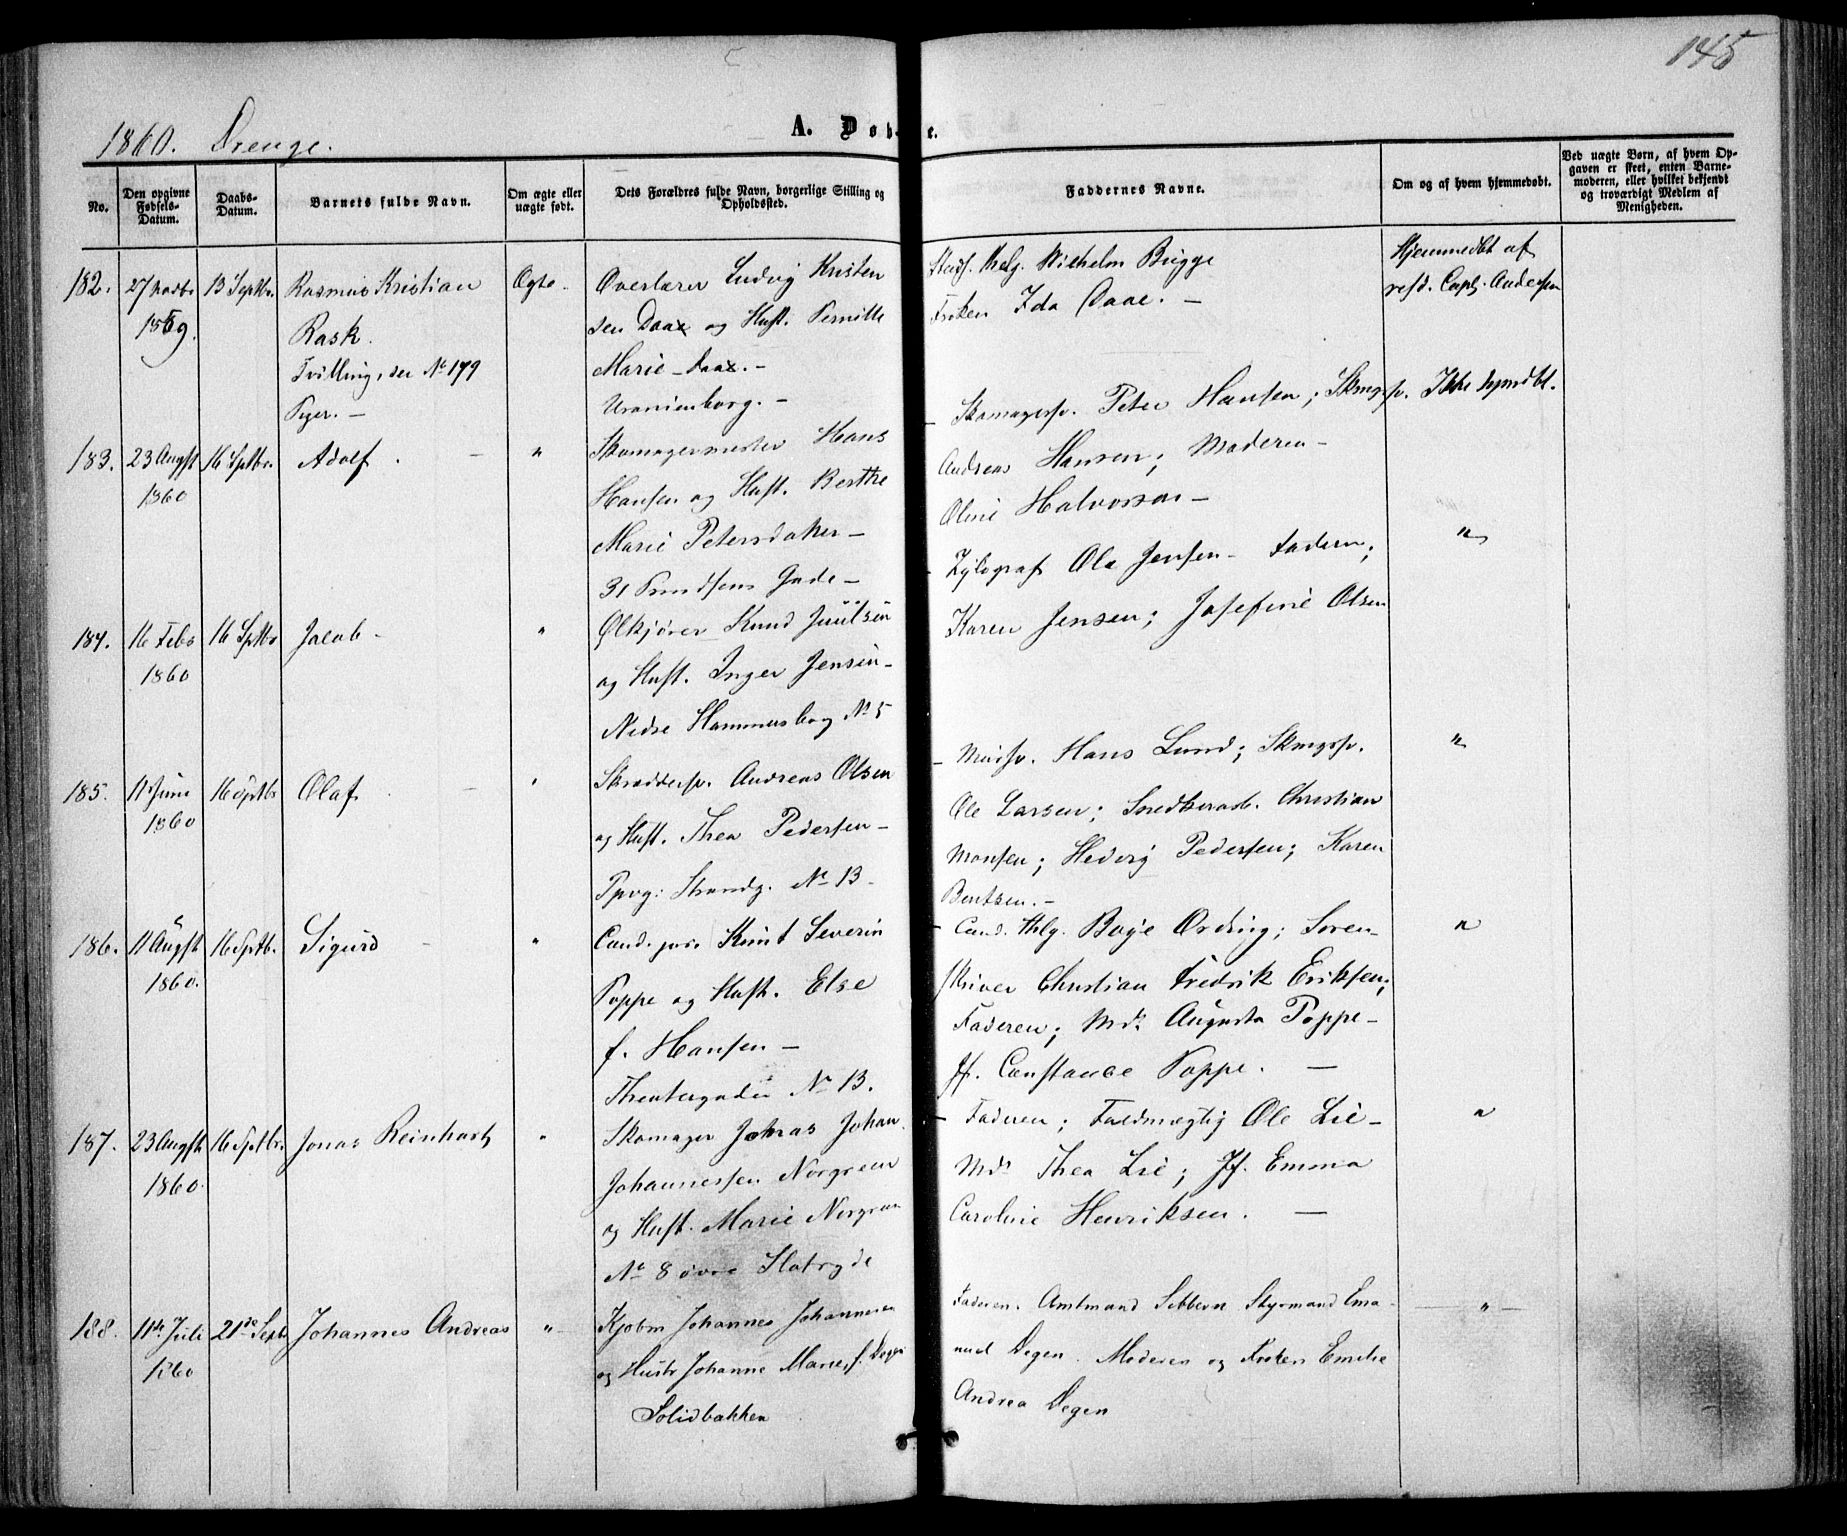 145
1860. Drenge.
A. Døb e.
No.
Den opgivne Fødsels-Datum.
Daabs-Datum.
Barnets fulde Navn.
Om ægte eller uægte født.
Dets Forældres fulde Navn, borgerlige Stilling og Opholdssted.
Faddernes Navne.
Om og af hvem hjemmedøbt.
Ved uægte Børn, af hvem Opgaven er skeet, enten Barnemoderen, eller hvilket bekjendt og troværdigt Medlem af Menigheden.
182. 27 Novbr 13 Septbr. Rasmus Kristian Ægte. Overlærer Ludvig Kristen
1859. Rask. sen Daae og Hust. Pernille
Tvilling, see No 179 Marie Daae. -
Piger. - Uranienborg. -
Stud. theolg. Wilhelm Brigge
Frøken Ida Daae. -
Hjemmedbt af
resd. Capl. Andersen
183. 23 Augst 16 Septbr. Adolf. - " Skomagermester Hans
1860 Hansen og Hust. Berthe
Marie Petersdatter -
31 Pundsens Gade -
- Skomagersv. Peter Hansen; Skmgrsv.
Andreas Hansen; Moderen -
Oline Halvorsen -
Ikke hjmdbt.
184. 16 Febr 16 Sptbr Jacob - " Ølkjører Knud Juulsen
1860 og Hust. Inger Jensen -
Nedre Hammersborg No 5
- Xylograf Ole Jensen - Faderen;
Karen Jensen; Josefine Olsen
"
185. 11 Juni 16 Sptbr Olaf - " Skræddersv. Andreas Olsen
1860 og Hust. Thea Pedersen -
Ppvg: Strandg. No 13.
- Mursv. Hans Lund; Skmgrsv.
Ole Larsen; Snedkerarb. Christian
Monsen; Hedvig Pedersen; Karen
Bentsen. -
"
186. 11 Augst 16 Sptbr. Sigurd - " Cand. juris Knut Severin
1860. Poppe og Hust. Else
f. Hansen -
Theatergaden No 13.
- Cand. thlg. Boye Ording; Soren-
skriver Christian Fredrik Eriksen;
Faderen; Md. Augusta Poppe -
Jf. Constance Poppe. -
"
187. 23 Augst 16 Sptbr. Jonas Reinhart " Skomager Johras Johan
1860. Johannessen Norgreen
og Hust. Marie Norgreen
No 8 øvre Slotsgde
- Faderen; Fuldmægtig Ole Lie -
Md. Thea Lie; Jf. Emma
Caroline Henriksen. -
"
188. 11te Juli 21de Septbr Johannes Andreas " Kjøbm Johannes Johannesen
1860 og Hustr Johanne Marie, f. Degen
Solidbakken
Faderen. Amtmand Sibbern Styrmand Ema-
nuel Degen. Moderen og Frøken Emilie
Andrea Degen
"